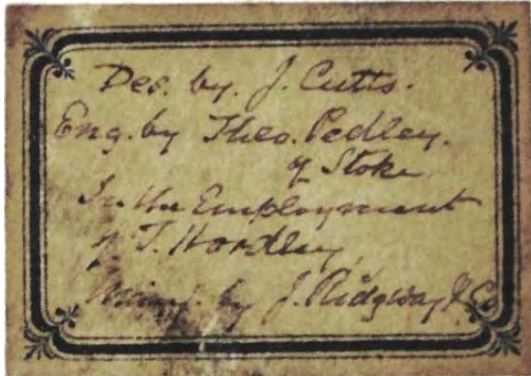 Des. by. J. Cutts.
Eng. by Theo. Pedley.
of Stoke
In the Employment
of T. Hordley
Manf. by J. Ridgway & Co